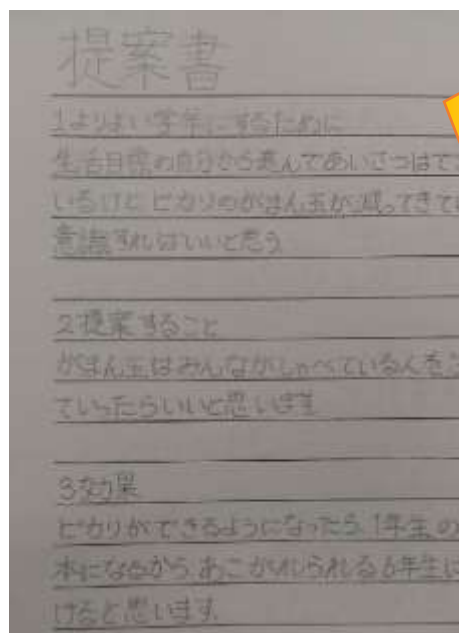 提案書
1よりよい学年にするために
生活目標の自分から進んであいさつはで
いるけど ピカリのがまん玉が減ってきて
意識すればいいと思う
2提案すること
がまん玉はみんながしゃべっている人を
ていったらいいと思います
3効果
ピカリができるようになったら、1年生の
本になるから、あこがれられる6年生に
けると思います。